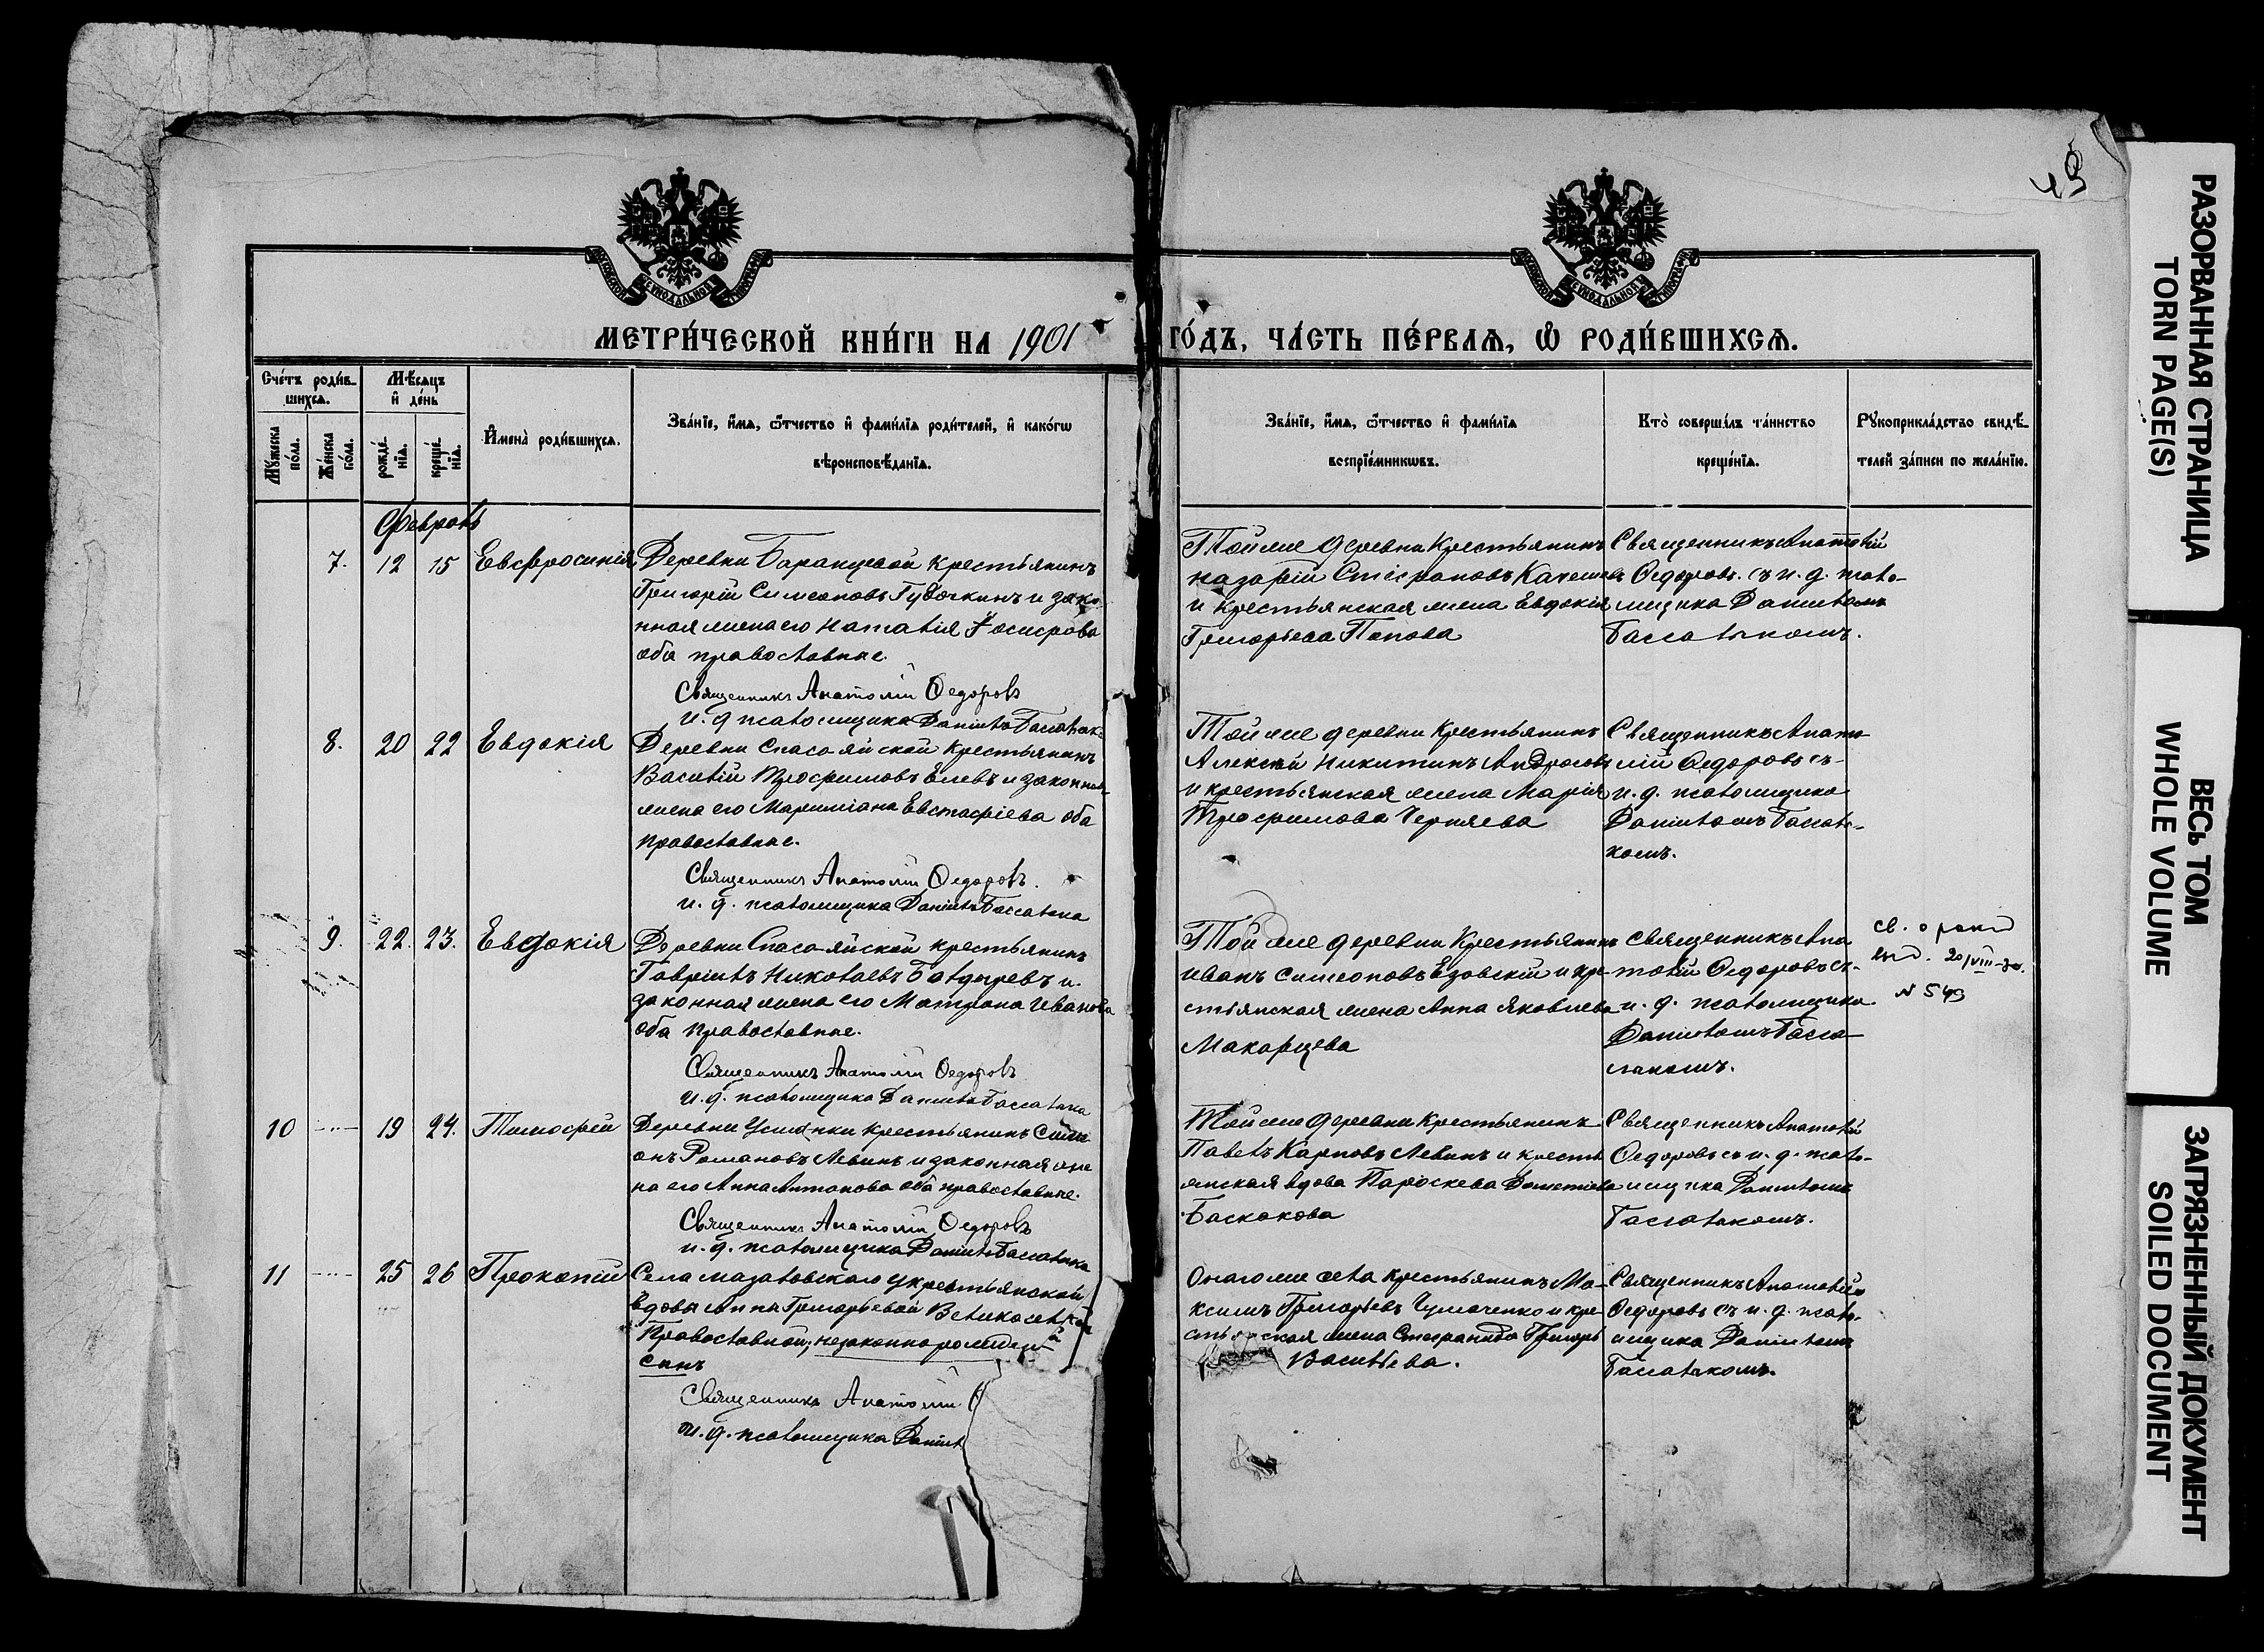 МЕТРИ́ЧЕСКОЙ КНИ́ГИ НА 1901
ГО́ДЪ, ЧА́СТЬ ПЕ́РВАѦ, Ѡ РОДИ́ВШИХСѦ.
Сче́тъ роди́в-
шихсѧ.
Мꙋ́жеска
по́ла.
Же́нска
по́ла.
Мѣ́сѧцъ
и҆ де́нь
рожде́-
нїѧ.
креще́-
нїѧ.
И҆мена̀ роди́вшихсѧ.
Зва́нїе, и҆́мѧ, ѻ҆́тчество и҆ фами́лїѧ роди́телей, и҆ како́гѡ
вѣроисповѣ́данїѧ.
Зва́нїе, и҆́мѧ, ѻ҆́тчество и҆ фами́лїѧ
воспрїе́мникѡвъ.
Кто̀ соверша́лъ та́инство
креще́нїѧ.
Рꙋкоприкла́дство свидѣ́-
телей за́писи по жела́нїю.
Февраль
7. 12 15 Евфросинія
Деревни Баранцевой крестьянинъ
Григорій Симеоновъ Губочкинъ и зако-
нная жена его Наталія Іосифова
оба православные.
Священникъ Анатолій Ѳедоровъ
и. д. псаломщика Даніилъ
Той же деревни крестьянинъ
Назарій Стефановъ
и крестьянская жена Евдокія
Григорьева Попова
Священникъ Анатолій
Ѳедоровъ съ и. д. псало-
мщика Даніиломъ
8. 20 22 Евдокія
Деревни Спасо-яйской крестьянинъ
Василій Трофимовъ Елевъ и законная
жена его Мариміана Евстафіева оба
православные.
Священникъ Анатолій Ѳедоровъ.
и. д. псаломщика Даніилъ
Той же деревни крестьянинъ
Алексѣй Никитинъ Андросовъ
и крестьянская жена Марія
Трофимова Черняева
Священникъ Анато-
лій Ѳедоровъ съ
и. д. псаломщика
Даніиломъ
9. 22. 23. Евдокія
Деревни Спасо-яйской крестьянинъ
Гавріилъ Николаевъ Балдыревъ и
законная жена его Матрона Иванова
оба православные.
Священникъ Анатолій Ѳедоровъ
и. д. псаломщика Даніилъ
Той же деревни крестьянинъ
Иванъ Симеоновъ Едовскій и кре-
стьянская жена Анна Яковлева
Макарцева
Священникъ Ана-
толій Ѳедоровъ съ
и. д. псаломщика
Даніиломъ
св. о рожд
выд. 20/VIII-30.
N 549
10 19 24. Тимофей
Деревни крестьянинъ Симе-
онъ Романовъ Левинъ и законная же-
на его Анна Антонова оба православные.
Священникъ Анатолій Ѳедоровъ
и. д. псаломщика Даніилъ
Той же деревни крестьянинъ
Павелъ Карповъ Левинъ и кресть-
янская вдова Параскева
Баскакова
Священникъ Анатолій
Ѳедоровъ съ и. д. псало-
мщика Даніиломъ
11 25 26 Прокопій
Села Мазаловскаго у крестьянской
вдовы Анны Григорьевой
Православной, незаконнорожден
сынъ
Священникъ Анатолій
и. д. псаломщика Даніил
Онаго же села крестьянинъ Ма-
ксимъ Григорьевъ Чумаченко и кре-
стьянская жена Стефанида Григорь
Васильева.
Священникъ Анатолій
Ѳедоровъ съ и. д. псало-
мщика Даніиломъ
РАЗОРВАННАЯ СТРАНИЦА
TORN PAGE(S)
ВЕСЬ ТОМ
WHOLE VOLUME
ЗАГРЯЗНЕННЫЙ ДОКУМЕНТ
SOILED DOCUMENT